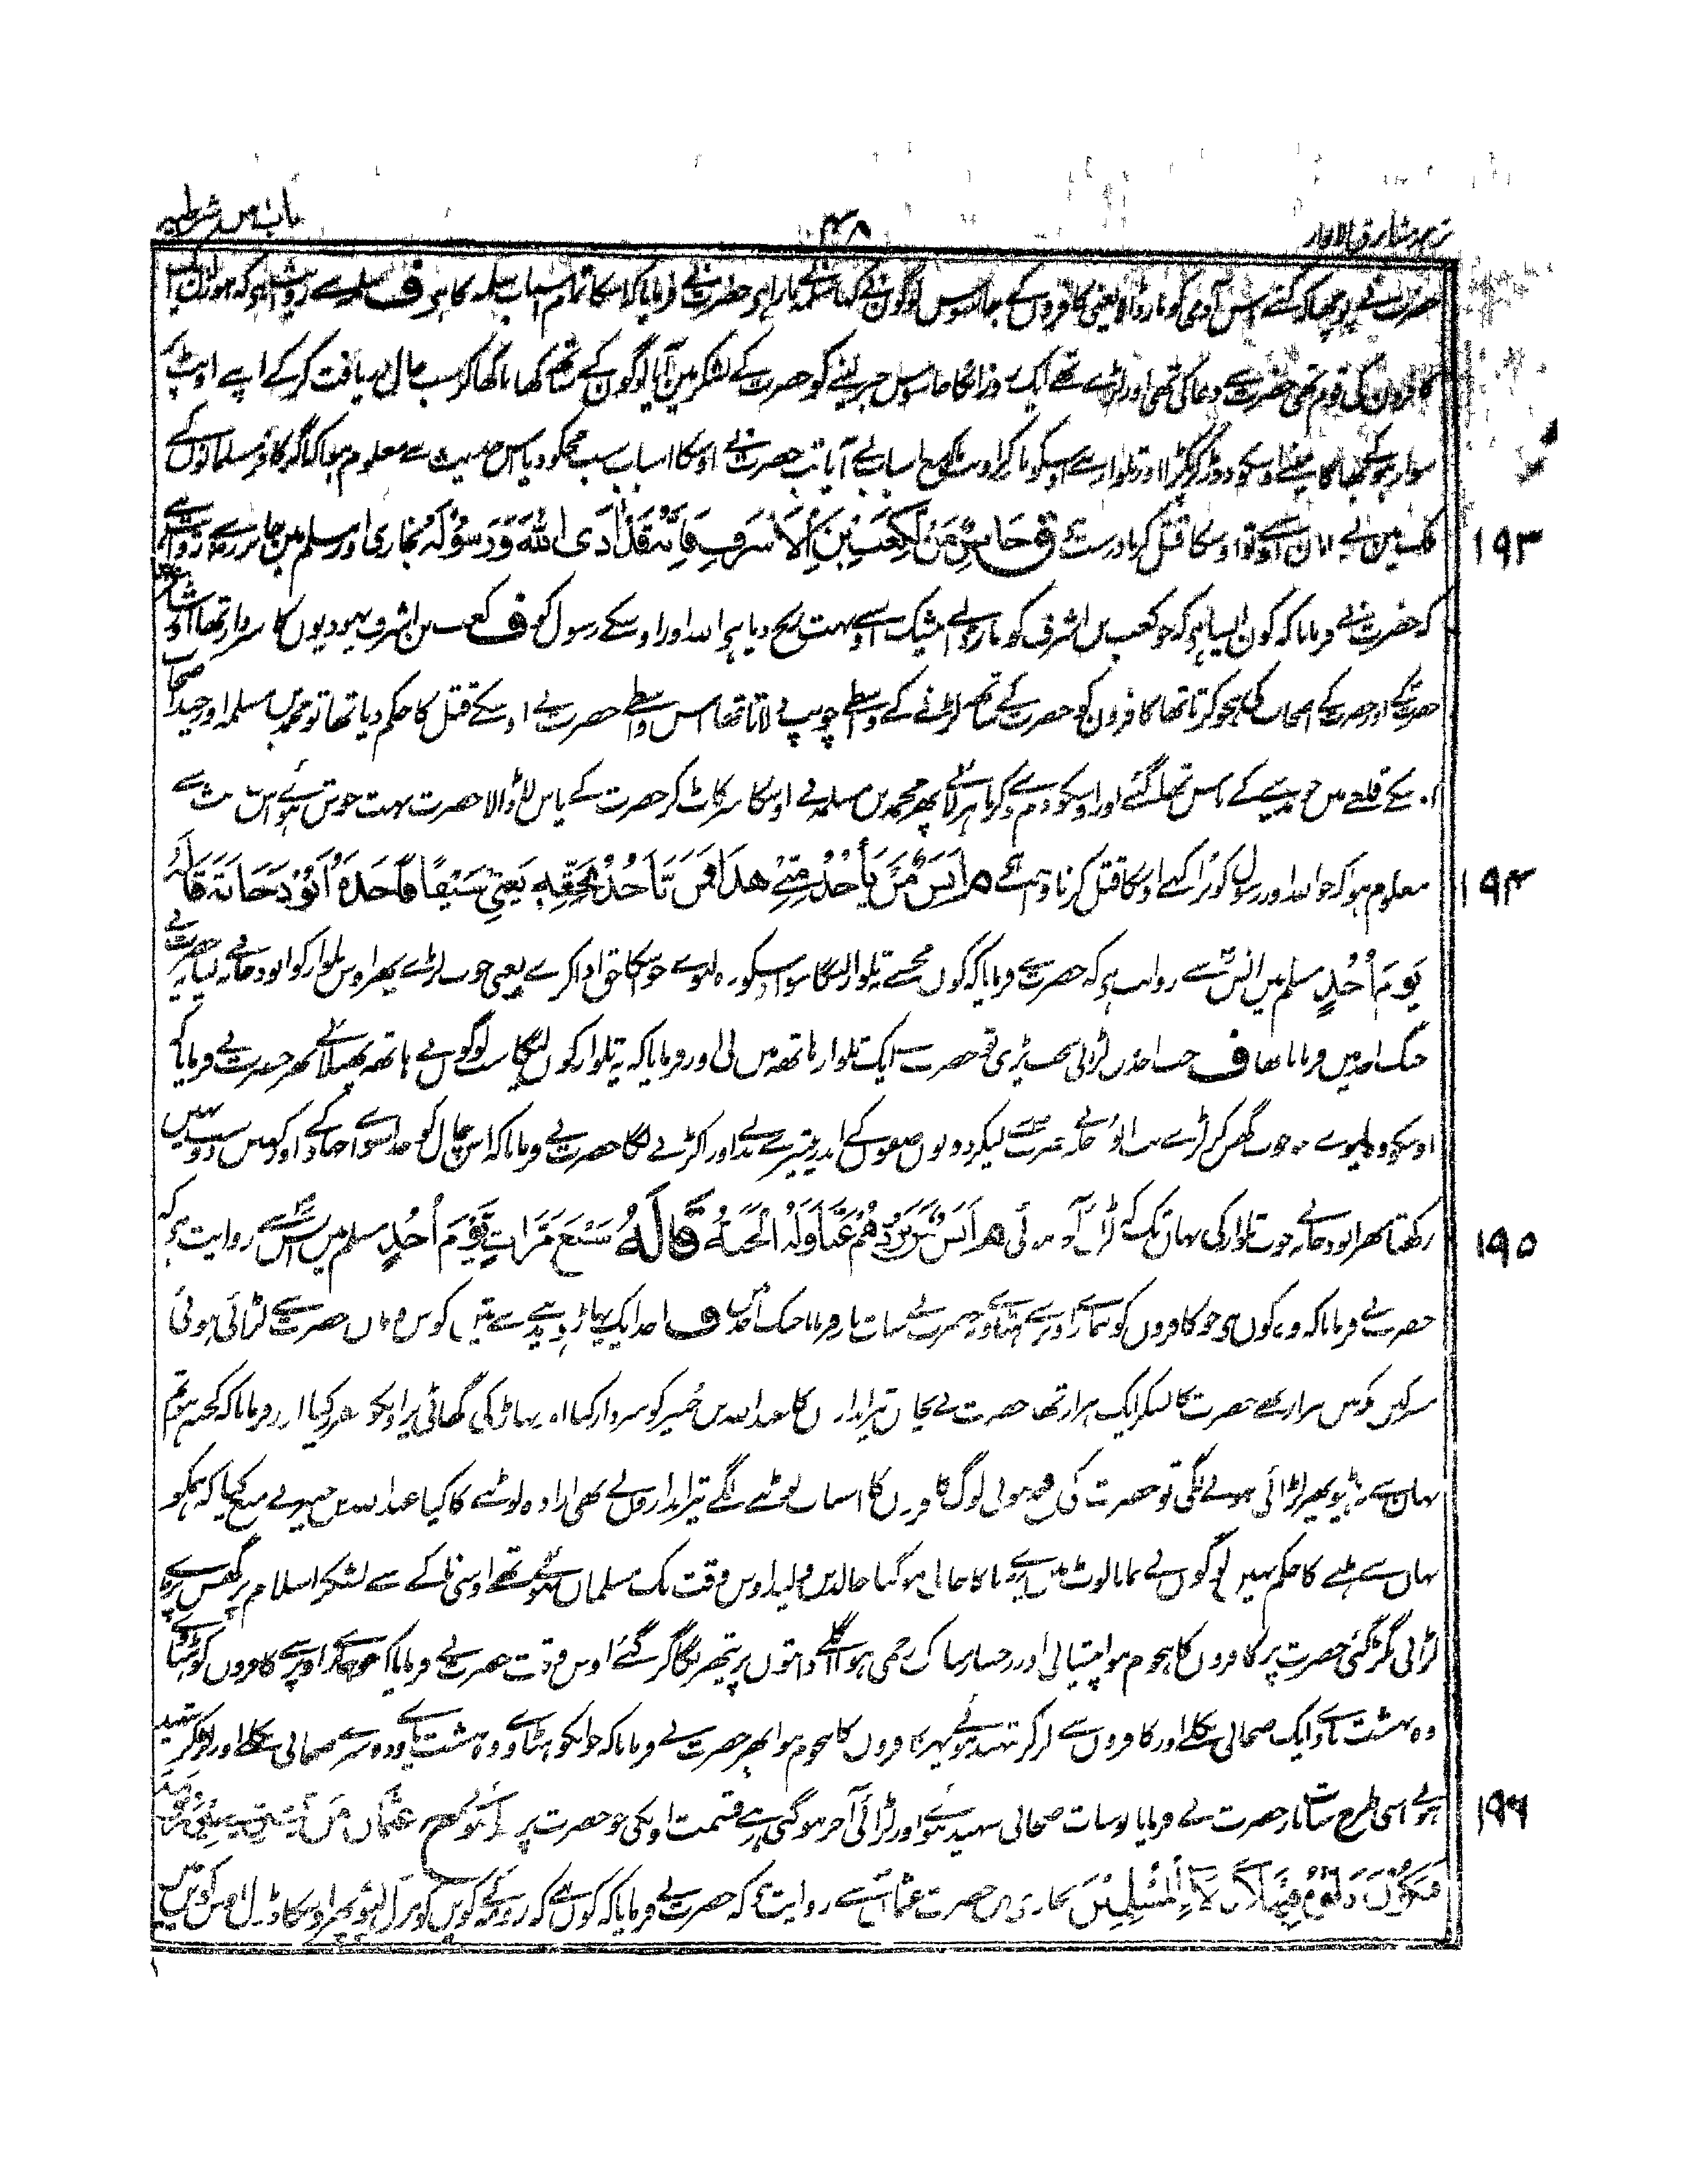 باب من شرطیہ
۴۸
ترجمہ مشارق الانوار
حضرت نے پوچھا کہ کسنے اس آدمی کو مار ڈالا یعنی کافروں کے جاسوس کو لوگوں نے کہا سلمہ نے مارا ہی حضرت نے فرمایا کہ اسکا تمام اسباب سلمہ کا ہی ف سلمہ سے روایت ہی کہ ہوازن
کافروں کی قوم تھی حضرت نے اور لڑے تھے ایک روز انکا جاسوس خبر لینے کو حضرت کے لشکر میں آیا لوگوں کے ساتھ کھانا کھا کر سب حال دریافت کر کے اپنے اونٹ پر
سوار ہو کے بھاگا مینے اوسکو دوڑ کر پکڑا اور تلوار سے اوسکو مار کر اونٹ اسکا مع اسباب لے آیا تب حضرت نے اوسکا اسباب سب مجکو دیا اس حدیث سے معلوم ہوا کہ اگر کافر مسلمانوں کے
ملک میں بے امان آوے تو اوسکا قتل کرنا درست ہی ق جَابِرٌ مَنْ لِكَعْبِ بْنِ الْاَشْرَفِ فَاِنَّهٗ قَدْ اٰذَی اللهَ وَرَسُوْلَهٗ بخاری اور مسلم میں جابر رض سے روایت ہی
۱۹۳
کہ حضرت نے فرمایا کہ کون ایسا ہی کہ جو کعب بن اشرف کو مار ڈالے بیشک اوسنے بہت رنج دیا ہی اللہ اور اوسکے رسول کو ف کعب بن اشرف یہودیوں کا سردار تھا اور شاعر
حضرت کے اور حضرت کے اصحاب کی ہجو کرتا تھا کافروں کو حضرت کے ساتھ لڑنے کے واسطے چڑھا لاتا تھا اس واسطے حضرت نے اوسکے قتل کا حکم دیا تھا تو محمد بن مسلمہ اور چند اصحاب
کے قلعے میں خیبر کے پاس تھا گئے اور اوسکو دم دیکر باہر لائے پھر محمد بن مسلمہ نے اوسکا سر کاٹ کر حضرت کے پاس لا ڈالا حضرت بہت خوش ہوئے اس حدیث سے
معلوم ہوا کہ جو اللہ اور رسول کو برا کہے اوسکا قتل کرنا درست ہی م اَنَسٌ مَنْ يَّاْخُذُ مِنِّيْ هٰذَا فَمَنْ يَّاْخُذُهٗ بِحَقِّهٖ يَعْنِيْ سَيْفًا فَاَخَذَهٗ اَبُوْ دُجَانَةَ قَالَهٗ
۱۹۴
يَوْمَ اُحُدٍ مسلم میں انس سے روایت ہی کہ حضرت نے فرمایا کہ کون مجھسے یہ تلوار لیگا سو اسکو وہ لیوے جو اسکا حق ادا کرے یعنی خوب لڑے پھر اوس تلوار کو ابو دجانہ نے لیا یہ حضرت نے
جنگ احد میں فرمایا تھا ف جب احد میں لڑائی سخت پڑی تو حضرت نے ایک تلوار ہاتھ میں لی اور فرمایا کہ یہ تلوار کون لیگا سب لوگوں نے ہاتھ پھیلائے پھر حضرت نے فرمایا کہ
اوسکو وہ لیوے جو خوب گھس کر لڑے تب ابو دجانہ حضرت سے لیکر دونوں صفوں کے اندر پیترے بدلنے اور اکڑنے لگا حضرت نے فرمایا کہ اس چال کو خدا سوا جہاد کے اور کہیں دوست نہیں
رکھتا پھر ابو دجانہ نے خوب تلوار کی یہاں تک کہ لڑائی آخر ہوئی م اَنَسٌ مَنْ يَّرُدُّهُمْ عَنَّا وَلَهُ الْجَنَّةُ قَالَهٗ سَبْعَ مَرَّاتٍ يَوْمَ اُحُدٍ مسلم میں انس سے روایت ہی کہ
۱۹۵
حضرت نے فرمایا کہ وہ کون ہی جو کافروں کو ہمارے اوپر سے ہٹاوے حضرت نے سات بار فرمایا جنگ احد میں ف احد ایک پہاڑ ہی مدینے سے تین کوس وہاں حضرت سے لڑائی ہوئی
مشرکین تین ہزار تھے حضرت کا لشکر ایک ہزار تھا حضرت نے پچاس تیرانداروں کا عبد اللہ بن جبیر کو سردار کیا اور پہاڑ کی گھاٹی پر اونکو مقرر کیا اور فرمایا کہ کچھ ہو تم
یہاں سے نہ ہٹیو پھر لڑائی ہونے لگی تو حضرت کی فتح ہوئی لوگ کافروں کا اسباب لوٹنے لگے تیراندازوں نے بھی ارادہ لوٹنے کا کیا عبد اللہ بن جبیر نے منع کیا کہ ہمکو
یہاں سے ہٹنے کا حکم نہیں لوگوں نے نمانا لوٹ میں پڑے ناکا خالی ہو گیا خالد بن ولید اوس وقت تک مسلمان نہوئے تھے اوسی ناکے سے لشکر اسلام پر گھس پڑے
لڑائی بگڑ گئی حضرت پر کافروں کا ہجوم ہوا پیشانی اور رخسار مبارک زخمی ہوا اگلے دانتوں پر پتھر لگا گر گئے اوس وقت حضرت نے فرمایا کہ جو ہمارے اوپر سے کافروں کو ہٹاوے
وہ بہشت پاوے ایک صحابی نکلے اور کافروں سے لڑ کر شہید ہوئے پھر کافروں کا ہجوم ہوا پھر حضرت نے فرمایا کہ جو انکو ہٹاوے وہ بہشت پاوے دوسرے صحابی نکلے اور لڑ کر شہید
ہوئے اسی طرح سات بار حضرت نے فرمایا اور سات صحابی شہید ہوئے اور لڑائی آخر ہو گئی زہے قسمت اونکی جو حضرت پر خ عثمان مَنْ
۱۹۶
فَيَكُوْنُ دَلْوُهٗ فِيْهَا كَدِلَاءِ الْمُسْلِمِيْنَ بخاری میں حضرت عثمان سے روایت ہی کہ حضرت نے فرمایا کہ کون ہی کہ رومہ کے کوئیں کو مول لیوے پھر اوسکا ڈول اس کوئیں میں